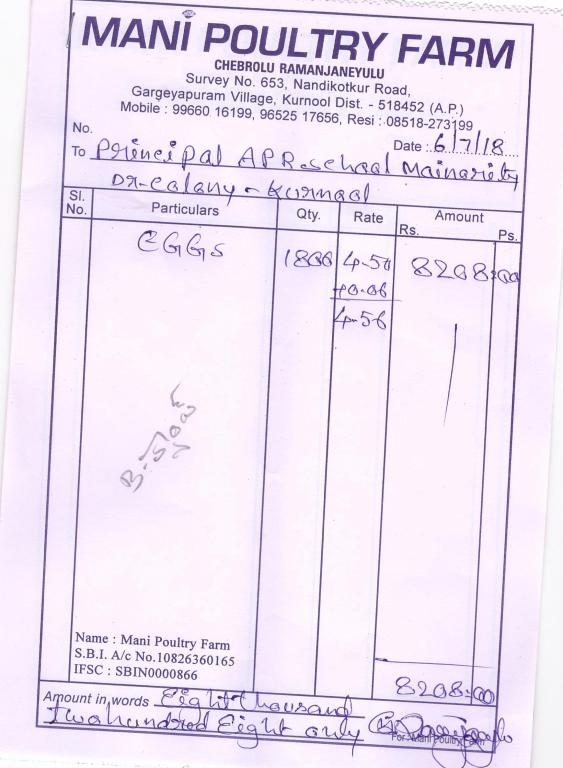 MANI POULTRY FARM
CHEBROLU RAMANJANEYULU
Survey No. 653, Nandikotkur Road,
Gargeyapuram Village, Kurnool Dist. - 518452 (A.P.)
Mobile : 99660 16199, 96525 17656, Resi : 08518-273199
No.
Date : 6/7/18
To Principal A P R. school Mainarity
Dr-calany - Kurnool
Sl. No. Particulars Qty. Rate Amount
Rs. Ps.
EGGS 1800 4-50 8208:00
+0.06
4-56
Name : Mani Poultry Farm
S.B.I. A/c No.10826360165
IFSC : SBIN0000866
8208:00
Amount in words Eight thousand
Twahundred Eight only
For Mani Poultry Farm